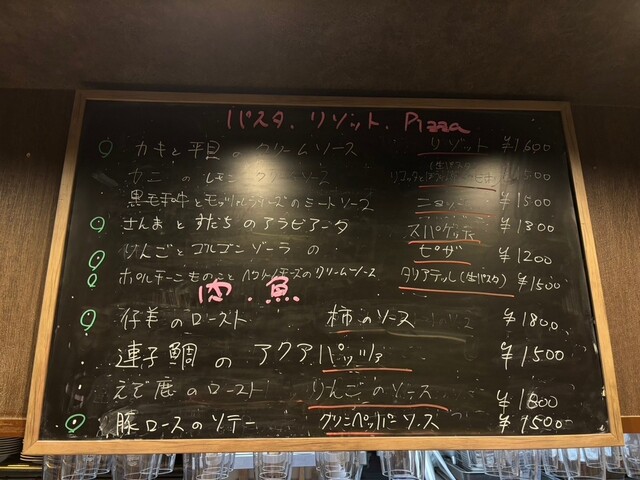 パスタ. リゾット. Pizza
カキと平貝のクリームソース リゾット ¥1600
カニのレモンクリームソース
黒毛和牛とモッツァレラチーズのミートソース ニョッキ ¥1500
さんまとすだちのアラビアータ スパゲッティ ¥1300
りんごとゴルゴンゾーラの ピザ ¥1200
ポルチーニものこと のクリームソース タリアテッレ(生パスタ) ¥1500
肉. 魚
仔羊のロースト 柿のソース ¥1800
連子鯛のアクアパッツァ ¥1500
えぞ鹿のロースト りんごのソース ¥1800
豚ロースのソテー グリーンペッパーソース ¥1500